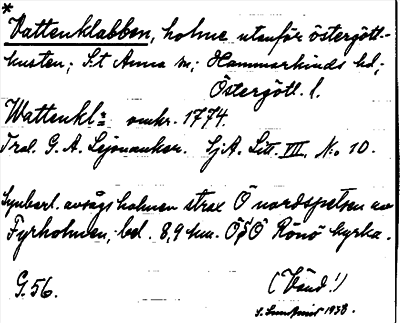 *
Vattenklabben, holme utanför östergött.-
kusten; S:t Anna sn; Hammarkinds hd;
Östergötl. l.
Wattenkl: omkr. 1774.
Tral. G. A. Lejonanker. SjA. Litt. III. No 10.
Synbarl. avsågs holmen strax Ö nordspetsen av
Fyrholmen, bel. 8,9 km. ÖSÖ Rönö kyrka.
G. 56.
(Vänd!)
S. 1938.